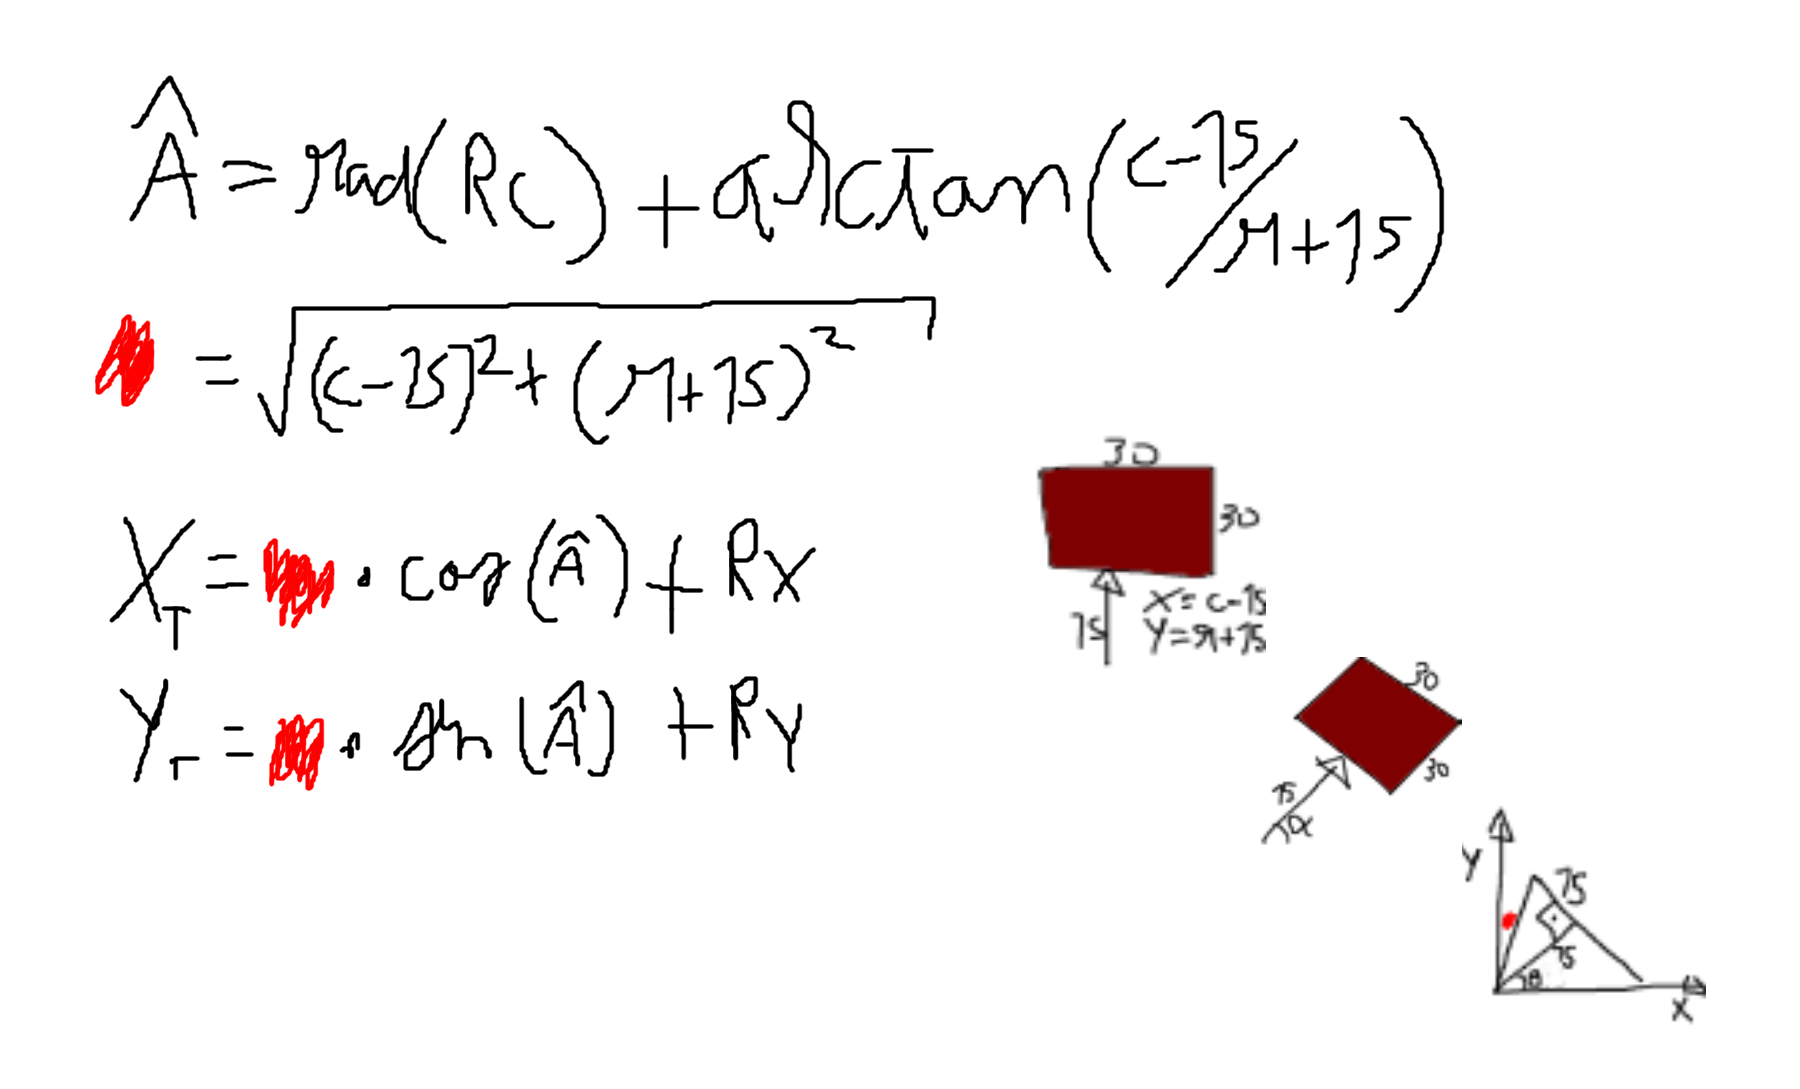 Â = rad(Rc) + arctan(c-15/r+15)
= √(c-15)² + (r+15)²
X_T = · cos(Â) + Rx
Y_T = · sin(Â) + Ry
30
30
15
X = c-15
Y = r+15
30
30
15
α
Y
15
15
θ
X